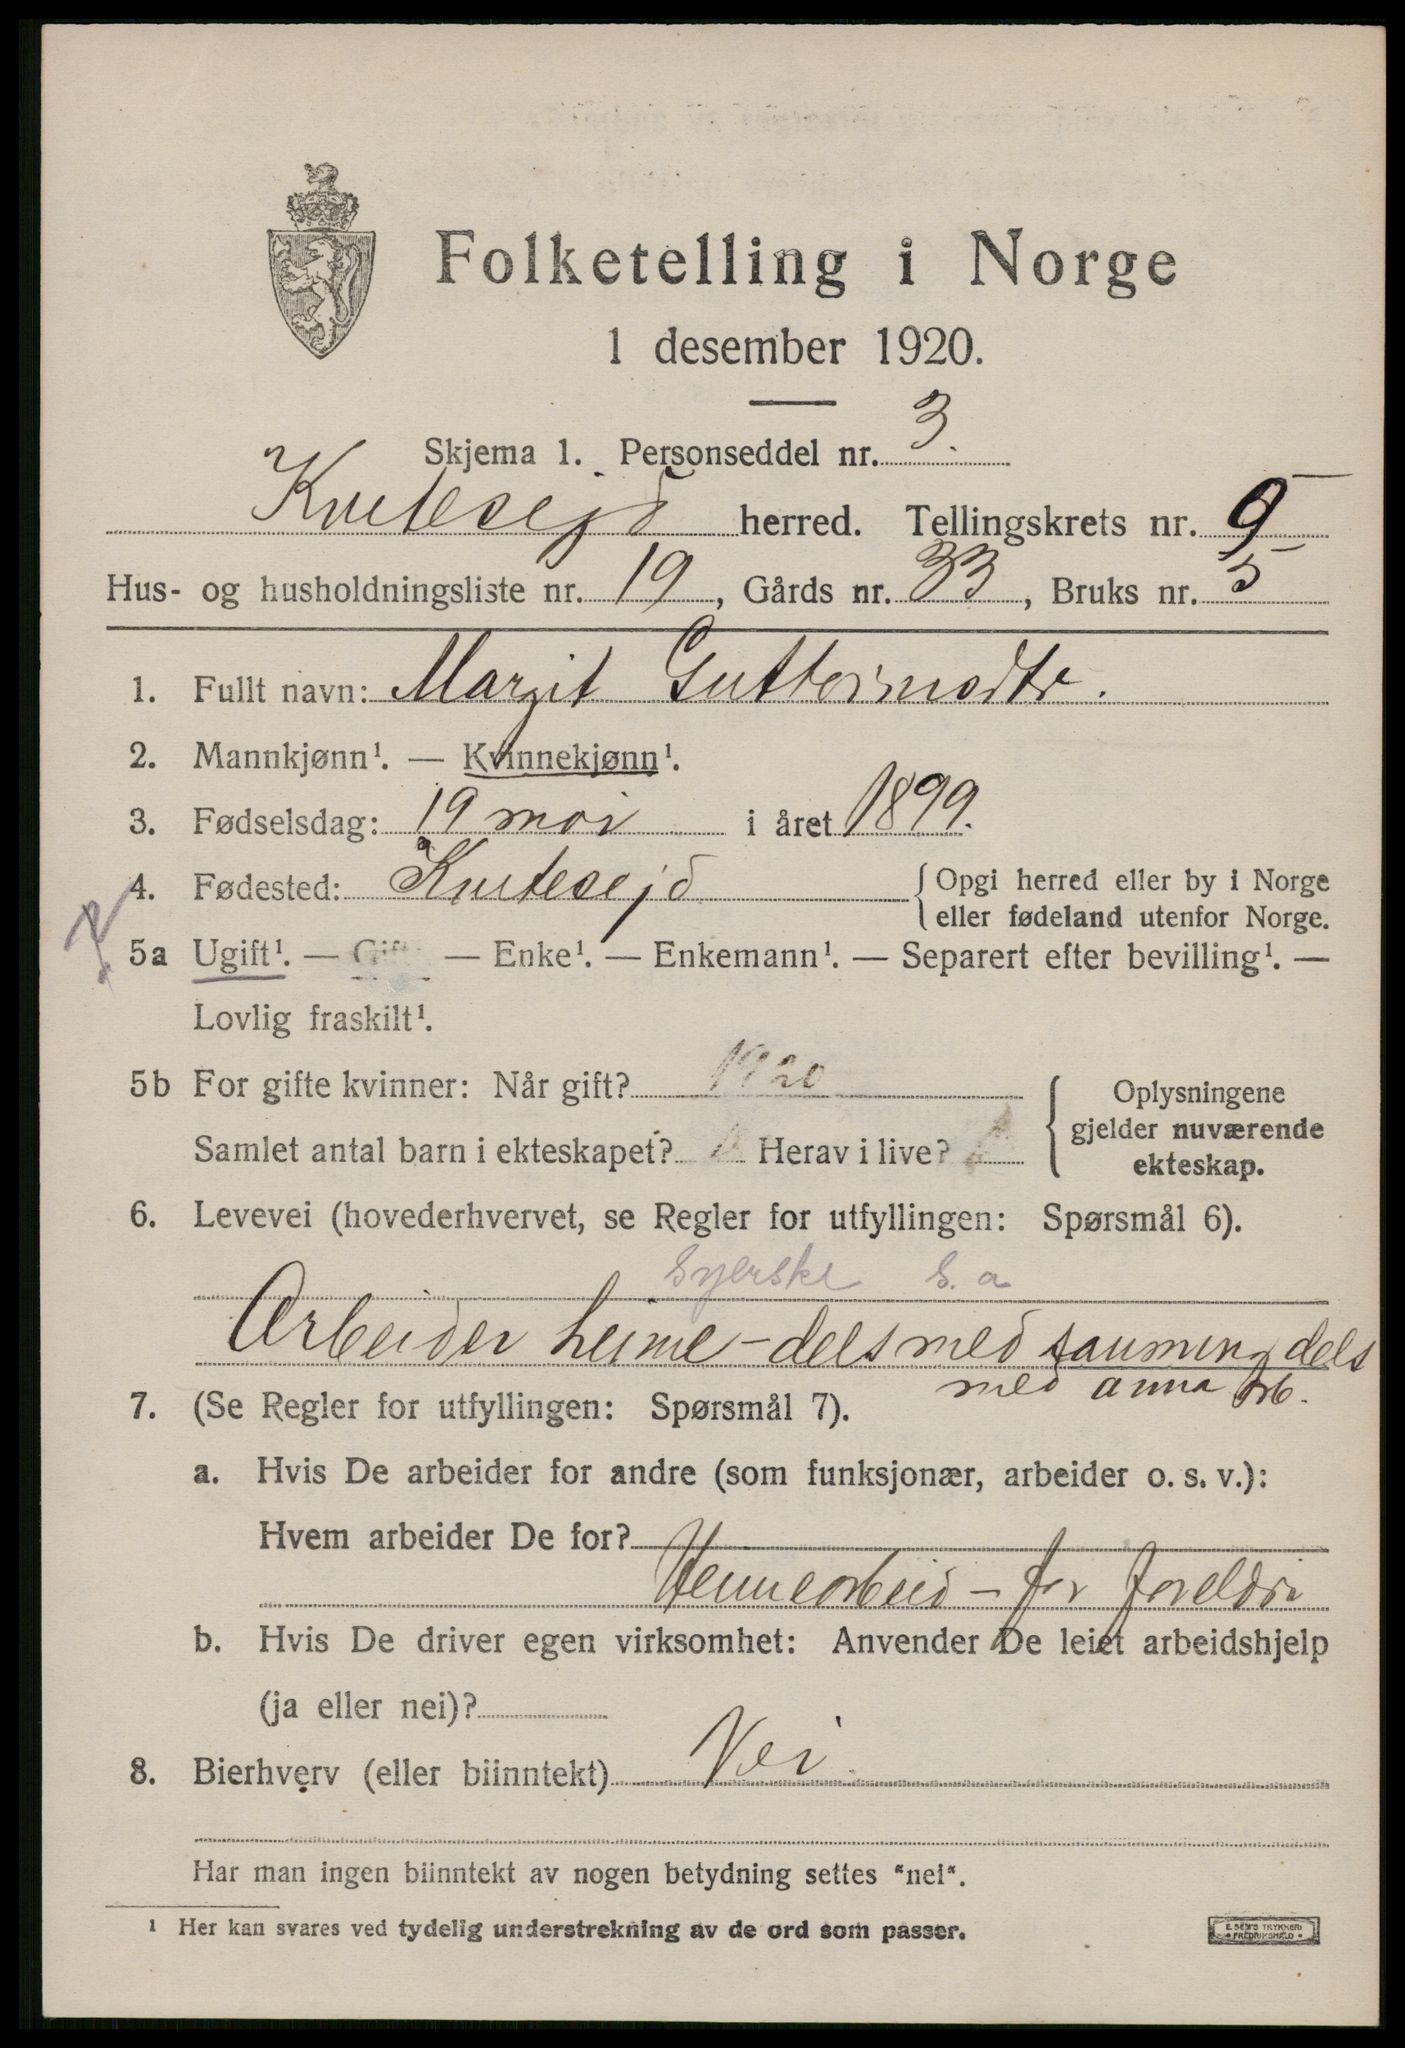 Folketelling i Norge
1 desember 1920.
Skjema 1. Personseddel nr. 3.
Kvitesejd herred. Tellingskrets nr. 9
Hus- og husholdningsliste nr. 19, Gårds nr. 33, Bruks nr. 5
1. Fullt navn: Margit Guttormsdtr.
2. Mannkjønn¹. — Kvinnekjønn¹.
3. Fødselsdag: 19 mai i året 1899.
4. Fødested: Kvitesejd {Opgi herred eller by i Norge
eller fødeland utenfor Norge.
5a Ugift¹. — Gift — Enke¹. — Enkemann¹. — Separert efter bevilling¹. —
Lovlig fraskilt¹.
5b For gifte kvinner: Når gift? 1920
Samlet antal barn i ekteskapet? Herav i live?
Oplysningene
gjelder nuværende
ekteskap.
6. Levevei (hovederhvervet, se Regler for utfyllingen: Spørsmål 6).
Syerske S. a
Arbeider heime - dels med sauming dels
med anna arb.
7. (Se Regler for utfyllingen: Spørsmål 7).
a. Hvis De arbeider for andre (som funksjonær, arbeider o. s. v.):
Hvem arbeider De for?
Heimearbeid - for foreldri
b. Hvis De driver egen virksomhet: Anvender De leiet arbeidshjelp
(ja eller nei)?
8. Bierhverv (eller biinntekt) Nei.
Har man ingen biinntekt av nogen betydning settes "nei".
¹ Her kan svares ved tydelig understrekning av de ord som passer.
E. SEM'S TRYKKERI
FREDRIKSHALD